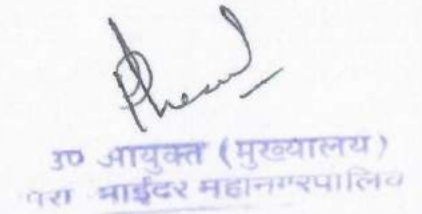 उप आयुक्त (मुख्यालय)
भाईंदर महानगरपालिका